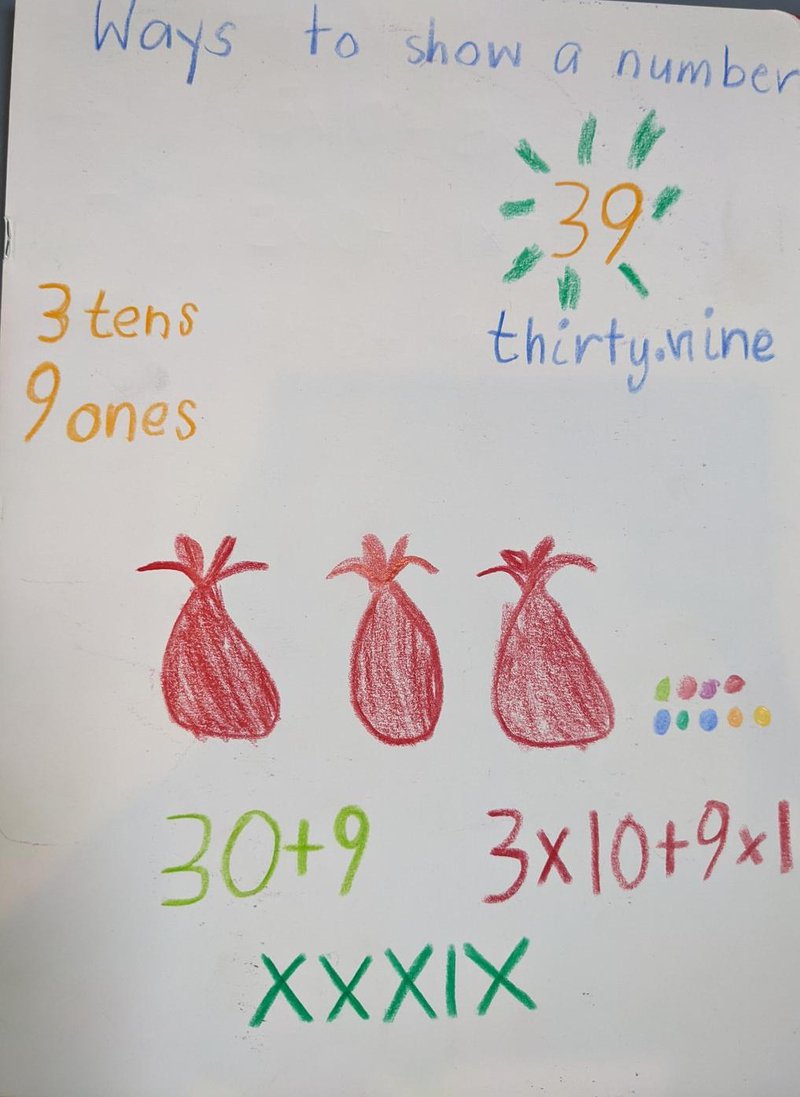 Ways to show a number
39
thirty.nine
3 tens
9 ones
30+9
3x10+9x1
XXXIX